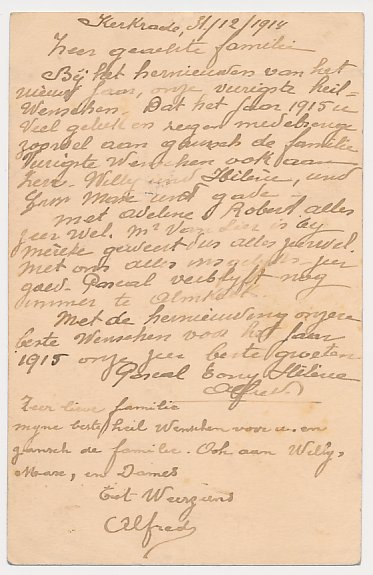 Kerkrade, 31/12/1914
Zeer geachte familie
Bij het hernieuwen van het
nieuw Jaar, onze vurigste heil-
Wenschen. Dat het Jaar 1915 u
Veel geluk en zegen medebrenge
zoowel aan gansch de familie
Vurigste Wenschen ook aan
Heer. Willy und Hélène, und
Max und
met Adeline, Robert alles
zeer Wel. Mr Van is by
geweest dus alles zeer wel.
Met ons alles zeer
goed. Pascal verblyft nog
immer te
Met de hernieuwing onzer
beste Wenschen voor het Jaar
1915 onze zeer beste groeten
Pascal Hélène
Alfred
Zeer lieve familie
myne beste heil Wenschen voor u. en
gansch de familie. Ook aan Willy,
Maxe, en Dames
Tot Weerziens
Alfred